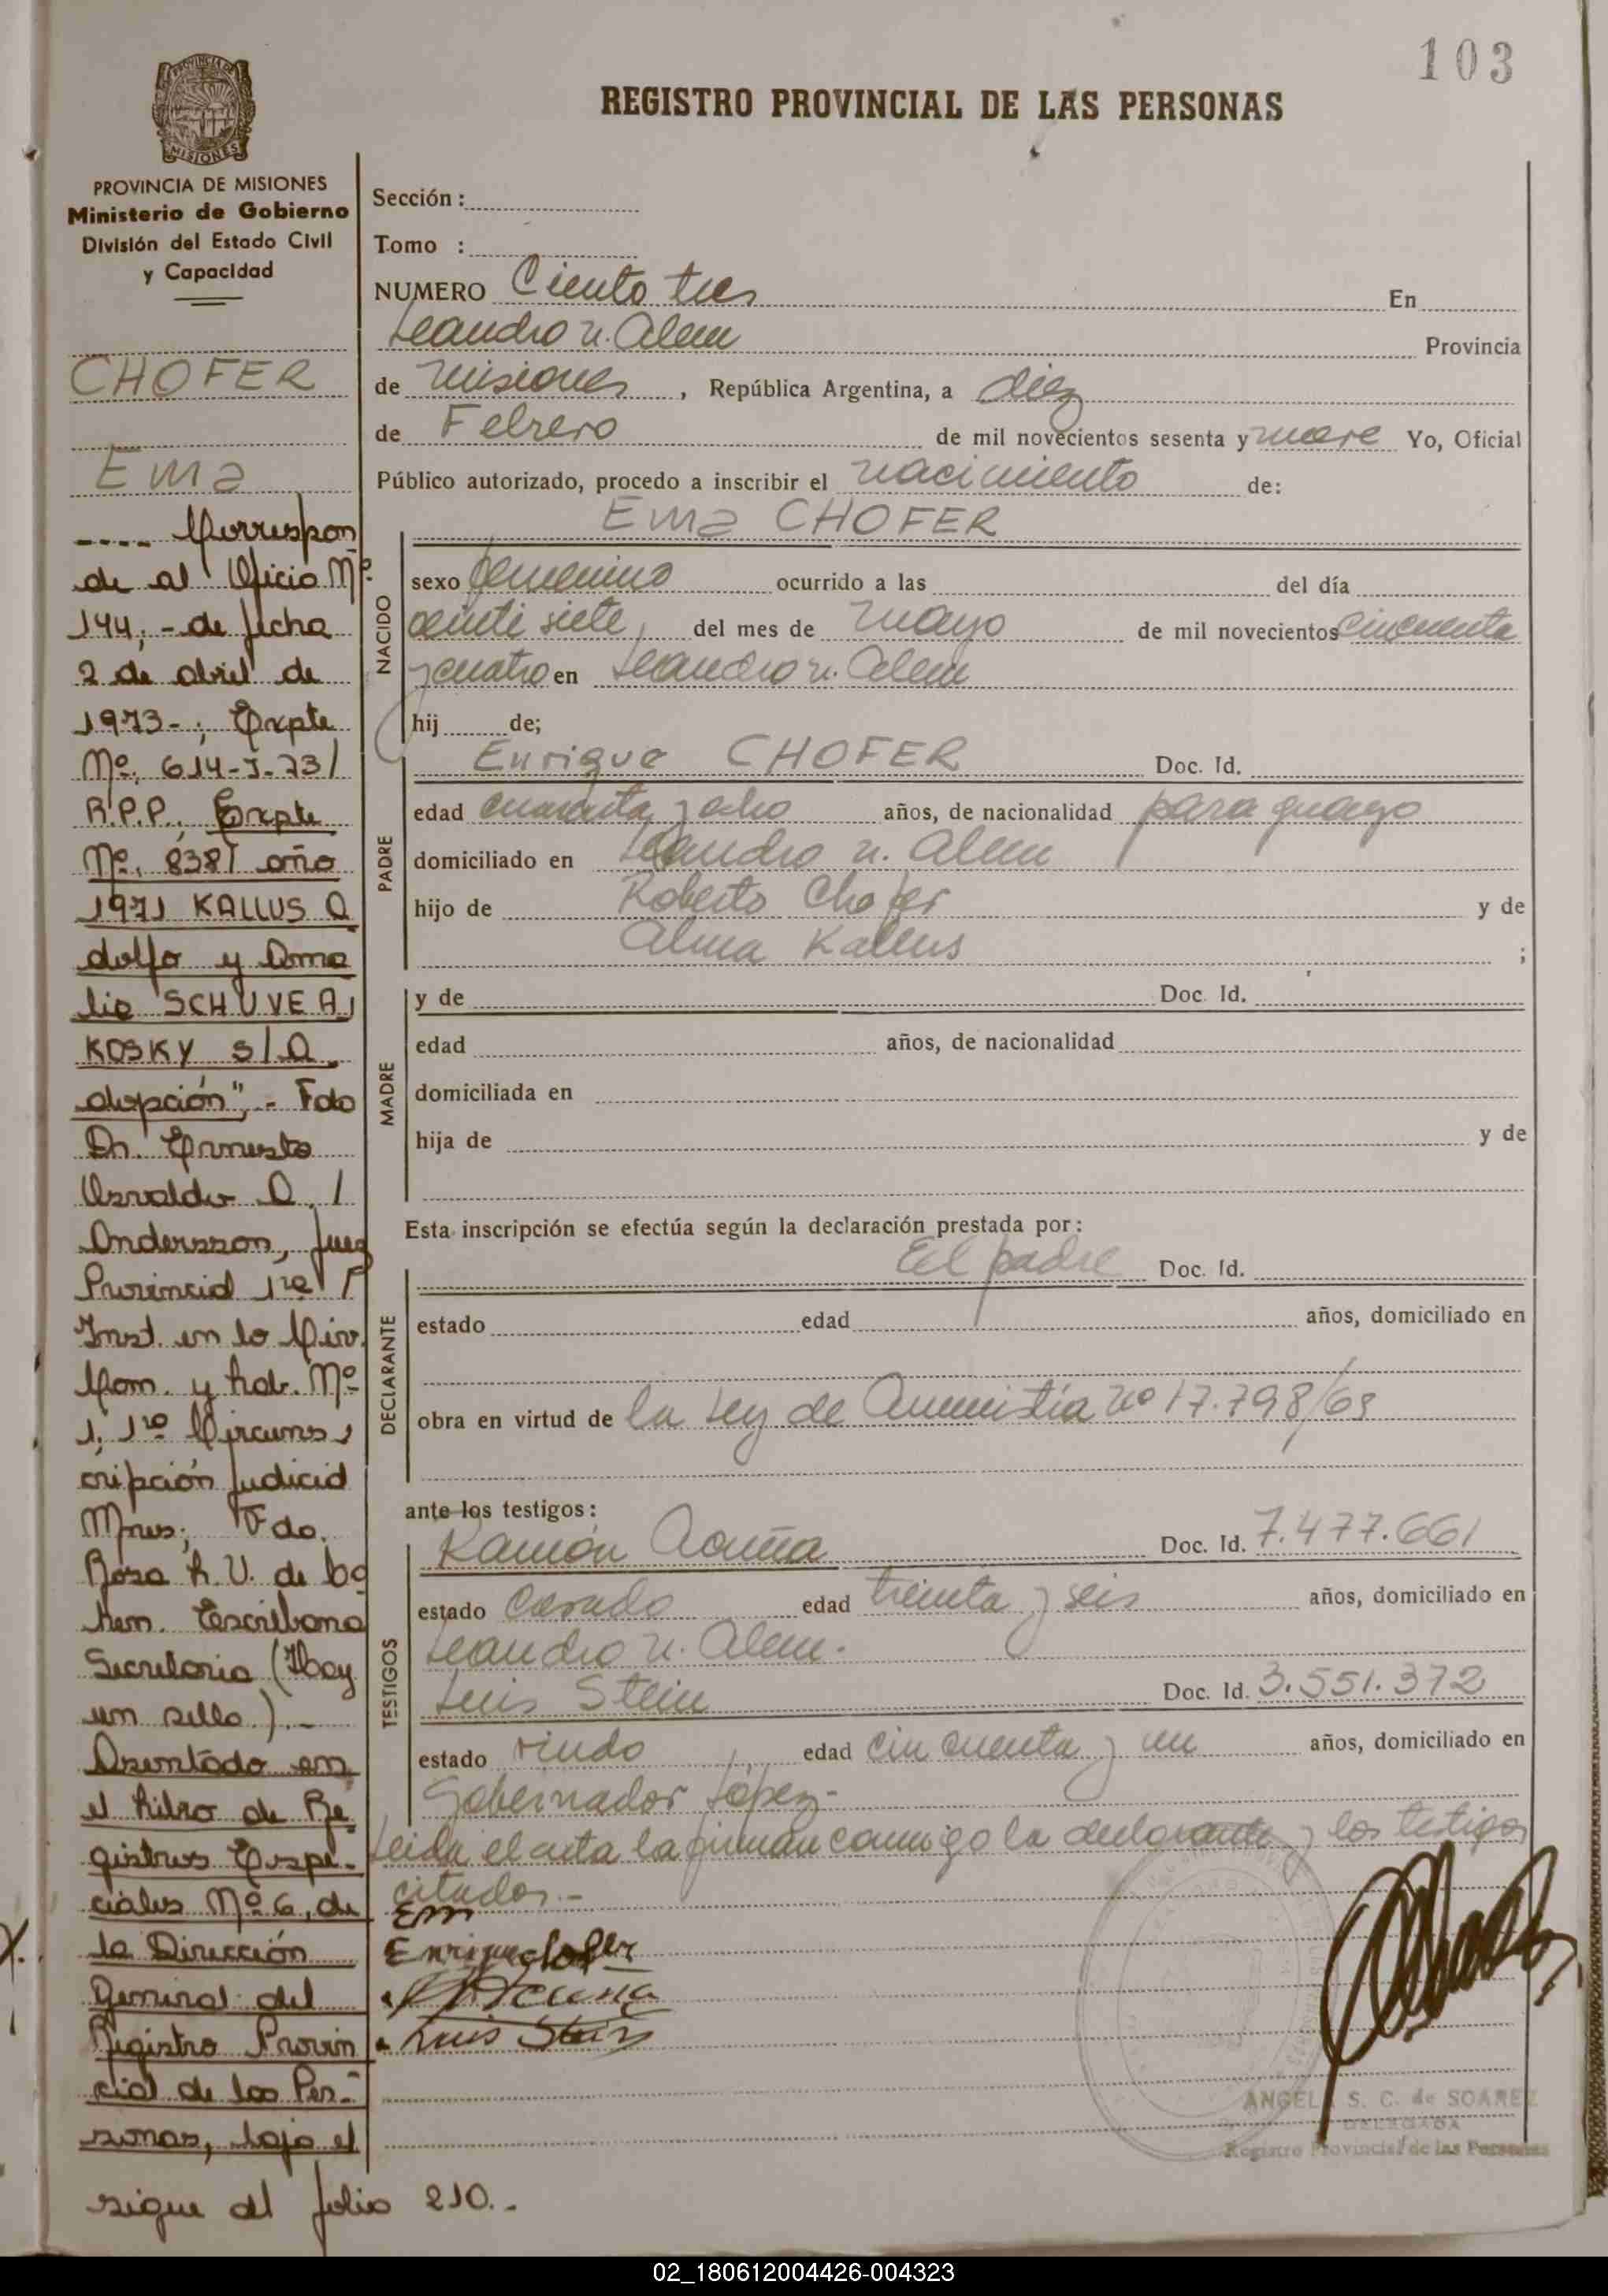 103
REGISTRO PROVINCIAL DE LAS PERSONAS
PROVINCIA DE MISIONES
Ministerio de Gobierno
División del Estado Civil
y Capacidad
CHOFER
Ema
.... Correspon
de al Oficio Nº
144; - de fecha
2 de abril de
1973-; Expte
Nº. 614-J-73/
R.P.P., Expte
Nº. 838/ año
1971 KALLUS A
dolfo y Ama
lia SCHUVEAJ
KOSKY s/A
dopción", - Fdo
Dr. Ernesto
Osvaldo A. /
Andersson, Juez
Provincial 1ra /
Inst. en lo Civ.
Com. y Lab. Nº
1, 1ra Circuns
cripción Judicial
Mnes; Fdo.
Rosa L. V. de
Escribana
Secretaria (Hay
un sello).-
Asentado en
el Libro de Re
gistros Espe-
ciales Nº 6, de
la Dirección
General del
Registro Provin
cial de las Per-
sonas, bajo el
sigue al folio 210.-
Sección :
Tomo :
NUMERO Ciento tres En
Leandro N. Alem Provincia
de Misiones , República Argentina, a diez
de Febrero de mil novecientos sesenta y nueve Yo, Oficial
Público autorizado, procedo a inscribir el nacimiento de:
NACIDO
Ema CHOFER
sexo femenino ocurrido a las del día
veinti siete del mes de Mayo de mil novecientos cincuenta
y cuatro en Leandro N. Alem
hij de;
PADRE
Enrique CHOFER Doc. Id.
edad cuarenta y ocho años, de nacionalidad paraguayo
domiciliado en Leandro N. Alem
hijo de Roberto Chofer y de
Alma Kallus ;
MADRE
y de Doc. Id.
edad años, de nacionalidad
domiciliada en
hija de y de
Esta inscripción se efectúa según la declaración prestada por:
DECLARANTE
El padre Doc. Id.
estado edad años, domiciliado en
obra en virtud de la Ley de Amnistía Nº 17.798/69
ante los testigos:
TESTIGOS
Ramón Acuña Doc. Id. 7.477.661
estado casado edad treinta y seis años, domiciliado en
Leandro N. Alem.
Luis Stein Doc. Id. 3.551.372
estado viudo edad cincuenta y un años, domiciliado en
Gobernador López-
Leída el acta la firman conmigo la declarante y los testigos
citados.-
Em
Enrique Chofer
Acuña
Luis Stein
ANGELA S. C. de SOAREZ
DELEGADA
Registro Provincial de las Personas
02_180612004426-004323